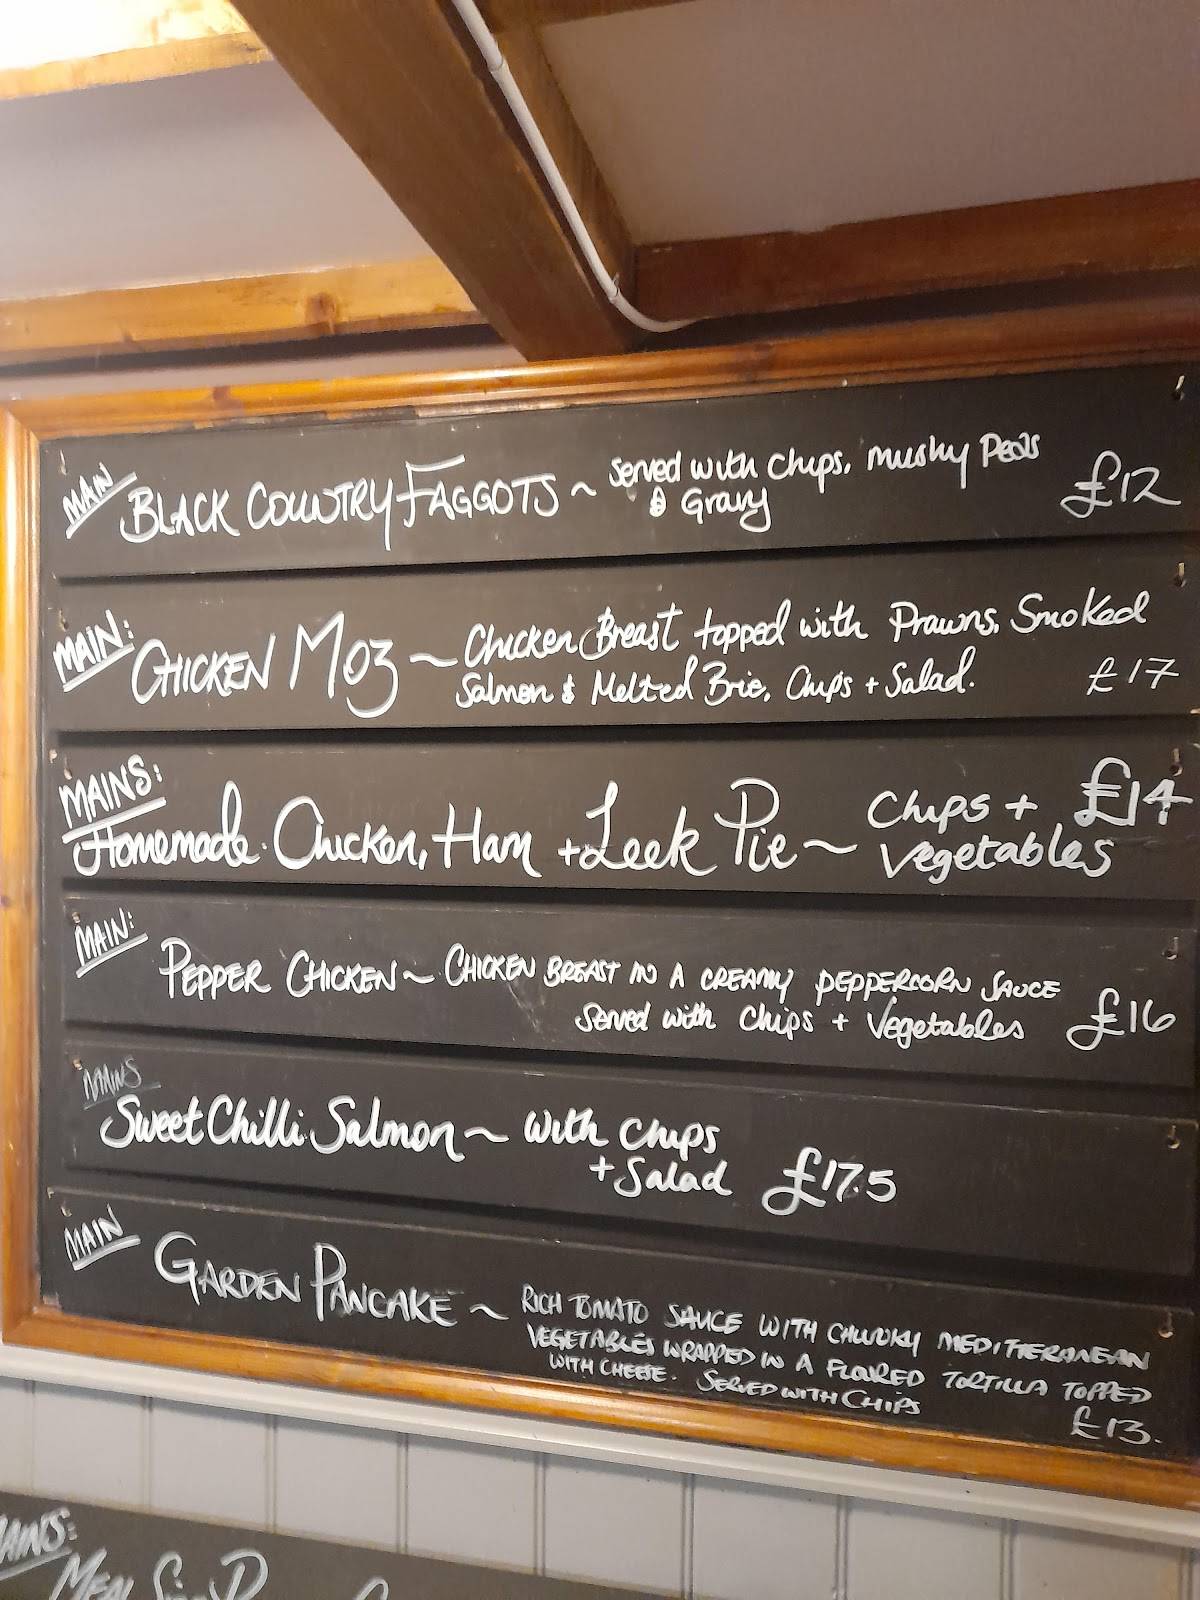 MAIN
BLACK COUNTRY FAGGOTS ~ Served with Chips, Mushy Peas
& Gravy £12
MAIN:
CHICKEN MOZ ~ Chicken Breast topped with Prawns, Smoked
Salmon & Melted Brie, Chips + Salad. £17
MAINS:
Homemade Chicken, Ham + Leek Pie ~ Chips + £14
Vegetables
MAIN:
PEPPER CHICKEN ~ CHICKEN BREAST IN A CREAMY PEPPERCORN SAUCE
Served with Chips + Vegetables £16
MAINS
Sweet Chilli Salmon ~ with Chips
+ Salad £17.5
MAIN
GARDEN PANCAKE ~ RICH TOMATO SAUCE WITH CHUNKY MEDITERANEAN
VEGETABLES WRAPPED IN A FLOURED TORTILLA TOPPED
WITH CHEESE. SERVED WITH CHIPS
£13.
MAINS:
MEAL